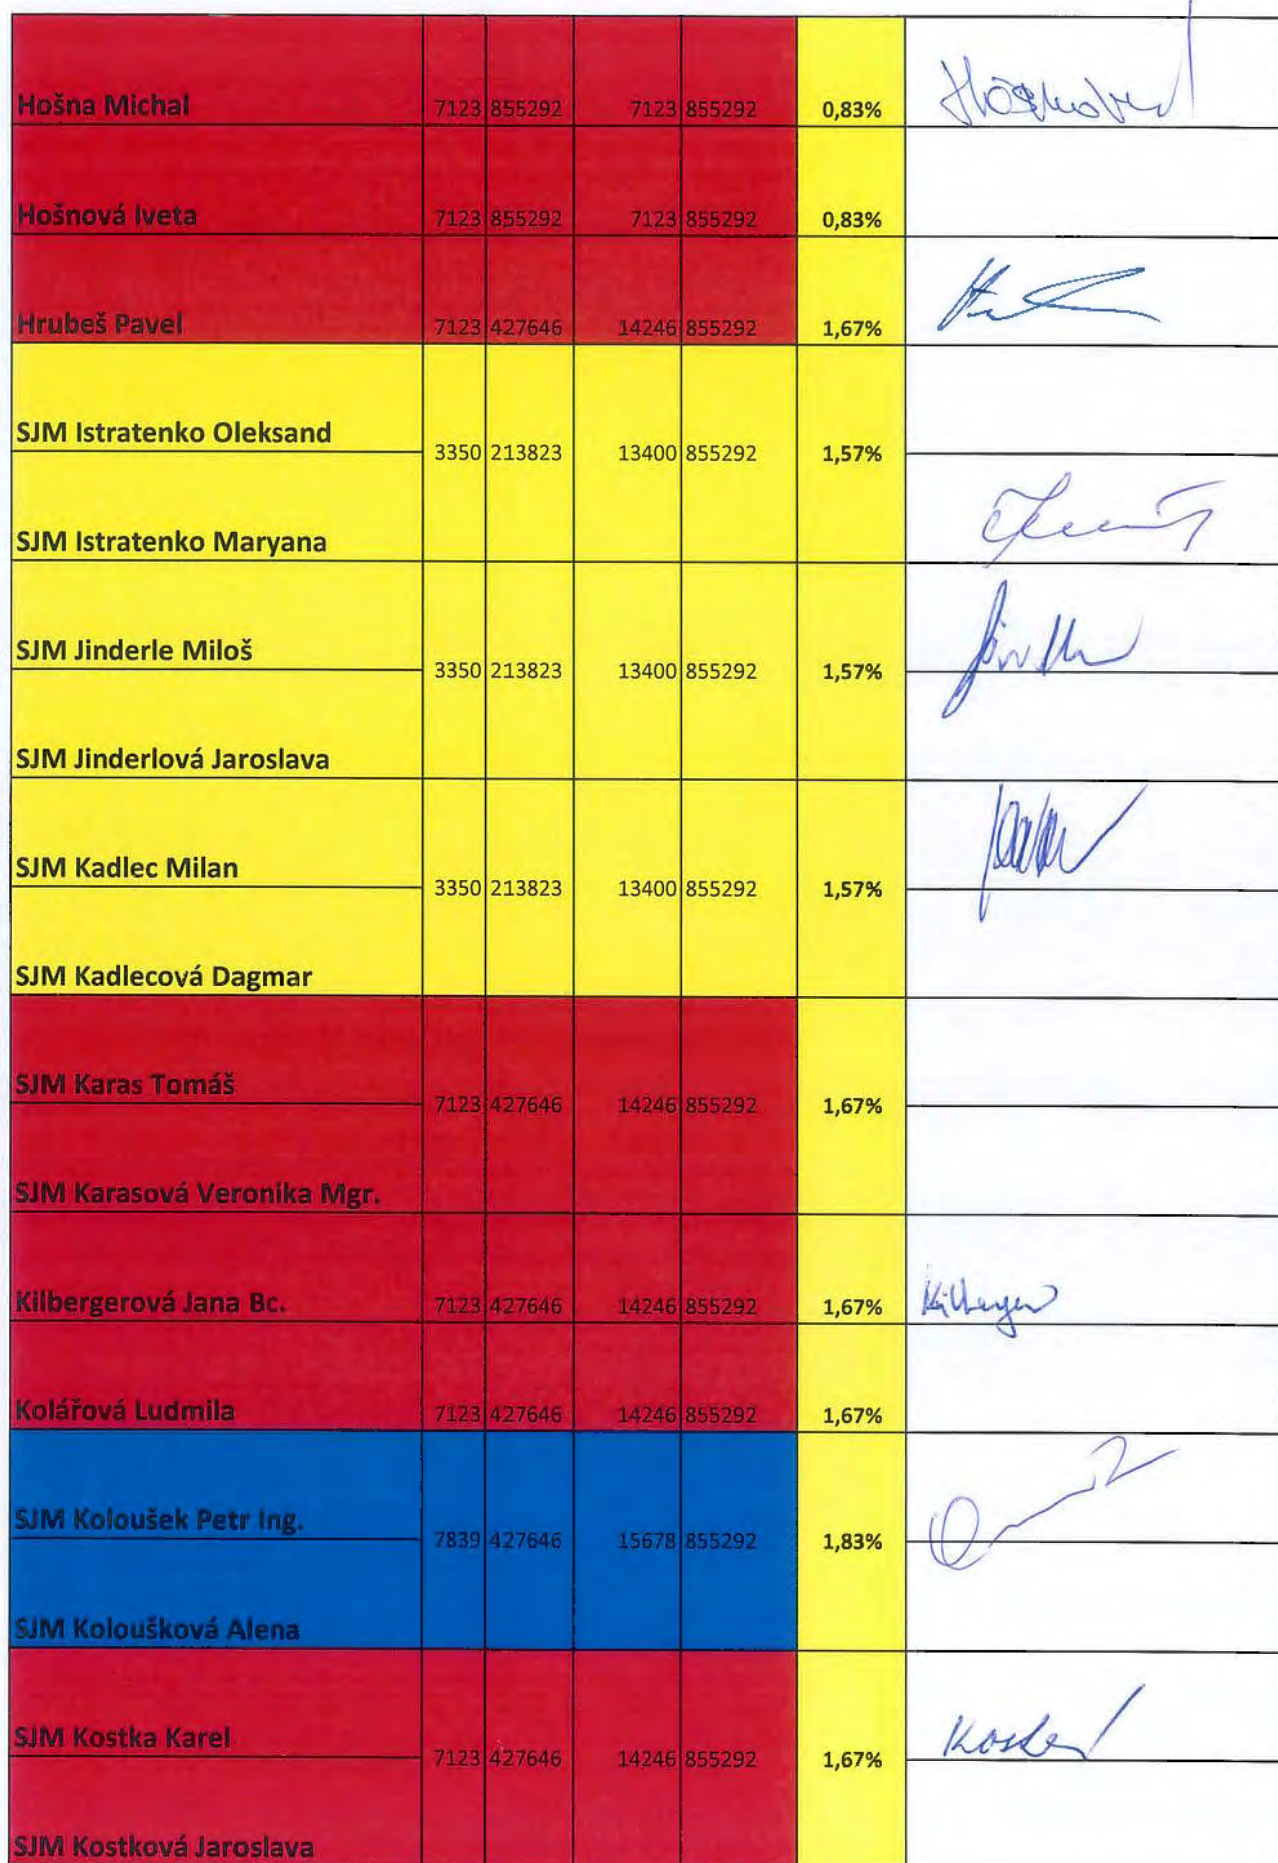 Hošna Michal 7123 855292 7123 855292 0,83%
Hošnová Iveta 7123 855292 7123 855292 0,83%
Hrubeš Pavel 7123 427646 14246 855292 1,67%
SJM Istratenko Oleksand
3350 213823 13400 855292 1,57%
SJM Istratenko Maryana
SJM Jinderle Miloš
3350 213823 13400 855292 1,57%
SJM Jinderlová Jaroslava
SJM Kadlec Milan
3350 213823 13400 855292 1,57%
SJM Kadlecová Dagmar
SJM Karas Tomáš
7123 427646 14246 855292 1,67%
SJM Karasová Veronika Mgr.
Kilbergerová Jana Bc. 7123 427646 14246 855292 1,67%
Kolářová Ludmila 7123 427646 14246 855292 1,67%
SJM Koloušek Petr Ing.
7839 427646 15678 855292 1,83%
SJM Koloušková Alena
SJM Kostka Karel
7123 427646 14246 855292 1,67%
SJM Kostková Jaroslava